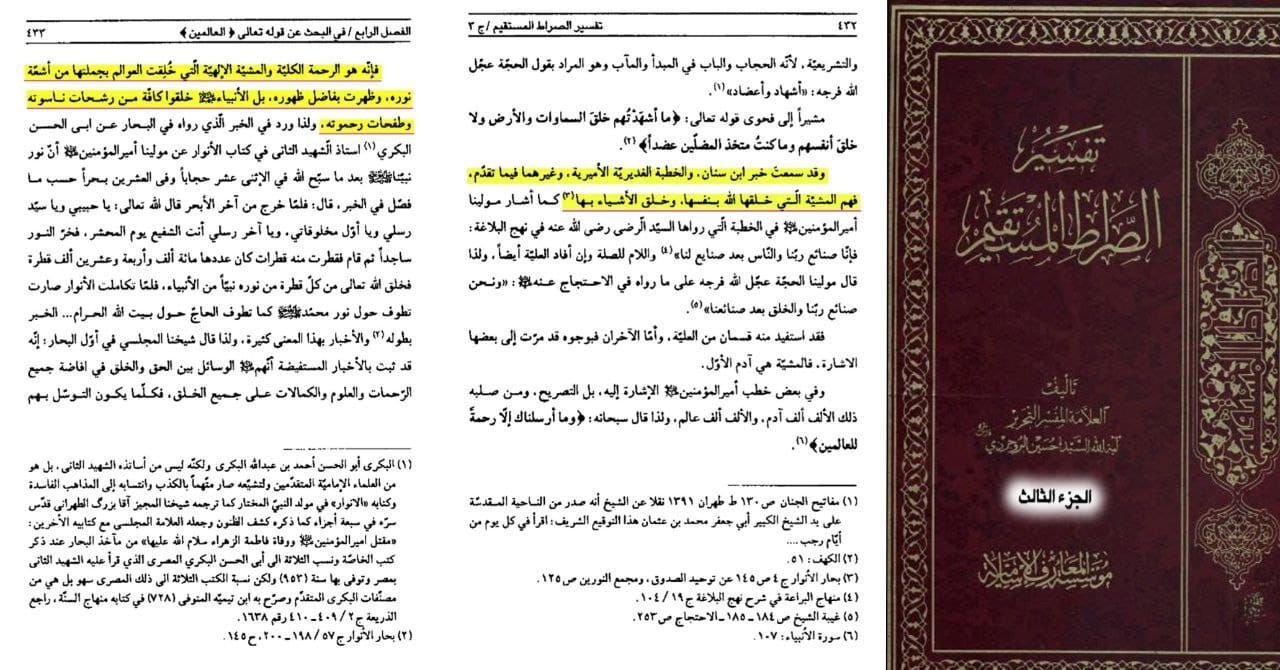 ٤٣٢ تفسير الصراط المستقيم / ج ٣
والتشريعيّة ، لأنّه الحجاب والباب في المبدأ والمآب وهو المراد بقول الحجّة عجّل
الله فرجه : «أشهاد وأعضاد»(١).
مشيراً إلى فحوى قوله تعالى : ﴿ما أشهدْتُهم خلقَ السماوات والأرض ولا
خلقَ أنفسهم وماكنتُ متخذ المضلّين عضداً﴾(٢).
وقد سمعتَ خبر ابن سنان، والخطبة الغديريّة الأميرية، وغيرهما فيما تقدّم،
فهم المشيّة الّتي خلقها الله بنفسها، وخلق الأشياء بها(٣) كما أشار مولينا
أميرالمؤمنين ﷺ في الخطبة الّتي رواها السيّد الرضى رضى الله عنه في نهج البلاغة :
فإنّا صنائع ربّنا والنّاس بعد صنايع لنا»(٤) واللام للصلة وإن أفاد العليّة أيضاً، ولذا
قال مولينا الحجّة عجّل الله فرجه على ما رواه في الاحتجاج عنه ﷺ : «ونحن
صنائع ربّنا والخلق بعد صنائعنا»(٥).
فقد استفيد منه قسمان من العليّة، وأمّا الآخران فبوجوه قد مرّت إلى بعضها
الاشارة، فالمشيّة هي آدم الأوّل.
وفي بعض خطب أميرالمؤمنين ﷺ الإشارة إليه، بل التصريح، ومن صلبه
ذلك الألف ألف آدم، والألف ألف عالم، ولذا قال سبحانه : ﴿وما أرسلناك إلّا رحمةً
للعالمين﴾(٦).
(١) مفاتيح الجنان ص ١٣٠ ط طهران ١٣٩١ نقلا عن الشيخ أنه صدر من الناحية المقدسّة
على يد الشيخ الكبير أبي جعفر محمد بن عثمان هذا التوقيع الشريف : اقرأ في كل يوم من
أيّام رجب ....
(٢) الكهف : ٥١.
(٣) بحار الأنوار ج ٤ ص ١٤٥ عن توحيد الصدوق، ومجمع النورين ص ١٢٥.
(٤) منهاج البراعة في شرح نهج البلاغة ج ١٩ / ١٠٤.
(٥) غيبة الشيخ ص ١٨٤ ـ ١٨٥ ـ الاحتجاج ص ٢٥٣.
(٦) سورة الأنبياء : ١٠٧.
الفصل الرابع / في البحث عن قوله تعالى ﴿العالمين﴾ ٤٣٣
فإنّه هو الرحمة الكليّة والمشيّة الإلهيّة الّتي خُلِقت العوالم بجملتها من أشعّة
نوره، وظهرت بفاضل ظهوره، بل الأنبياء ﷺ خلقوا كافّة من رشحات ناسوته
وطفحات رحموته، ولذا ورد في الخبر الّذي رواه في البحار عن ابى الحسن
البكري(١) استاذ الشّهيد الثانى في كتاب الأنوار عن مولينا أميرالمؤمنين ﷺ أنّ نور
نبيّنا ﷺ بعد ما سبّح الله في الإثنى عشر حجاباً وفى العشرين بحراً حسب ما
فصّل في الخبر، قال : فلمّا خرج من آخر الأبحر قال الله تعالى : يا حبيبي ويا سيّد
رسلي ويا أوّل مخلوقاتي، ويا آخر رسلي أنت الشفيع يوم المحشر، فخرّ النور
ساجداً ثم قام فقطرت منه قطرات كان عددها مائة ألف وأربعة وعشرين ألف قطرة
فخلق الله تعالى من كلّ قطرة من نوره نبيّاً من الأنبياء، فلمّا تكاملت الأنوار صارت
تطوف حول نور محمّد ﷺ كما تطوف الحاجّ حول بيت الله الحرام... الخبر
بطوله(٢) والأخبار بهذا المعنى كثيرة، ولذا قال شيخنا المجلسي في أوّل البحار : إنّه
قد ثبت بالأخبار المستفيضة أنّهم ﷺ الوسائل بين الحق والخلق في افاضة جميع
الرّحمات والعلوم والكمالات على جميع الخلق، فكلّما يكون التوسّل بهم
(١) البكرى أبو الحسن أحمد بن عبدالله البكرى ولكنّه ليس من أساتذه الشهيد الثانى، بل هو
من العلماء الإماميّة المتقدّمين ولتشيّعه صار متّهماً بالكذب وانتسابه إلى المذاهب الفاسدة
وكتابه «الانوار» في مولد النبيّ المختار كما ترجمه شيخنا المجيز آقا بزرگ الطهرانى قدّس
سرّه في سبعة أجزاء كما ذكره كشف الظنون وجعله العلامة المجلسي مع كتابيه الآخرين :
«مقتل اميرالمؤمنين ﷺ ووفاة فاطمة الزهراء سلام الله عليها» من مآخذ البحار عند ذكر
كتب الخاصّة ونسب الثلاثة الى أبي الحسن البكري المصرى الذي قرأ عليه الشهيد الثانى
بمصر وتوفى بها سنة (٩٥٣) ولكن نسبة الكتب الثلاثة الى ذلك المصرى سهو بل هي من
مصنّفات البكرى المتقدّم وصرّح به ابن تيميّه المتوفى (٧٢٨) في كتابه منهاج السنّة، راجع
الذريعة ج ٢ / ٤٠٩ ـ ٤١٠ رقم ١٦٣٨.
(٢) بحار الأنوار ج ٥٧ / ١٩٨ ـ ٢٠٠، ح ١٤٥.
تفسير
الصراط المستقيم
تأليف
العلامة المفسر النحرير
آية الله السيد حسين البروجردي
الجزء الثالث
مؤسسة المعارف الإسلامية